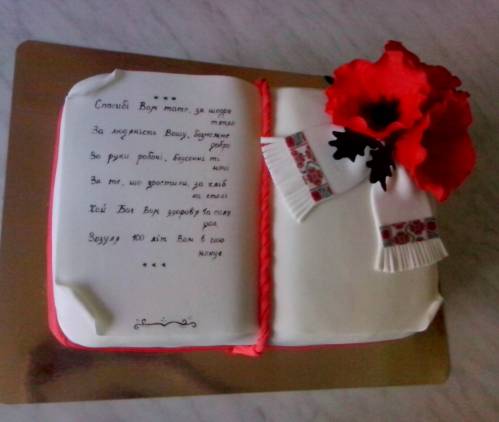 * * *
Спасибі Вам тато, за щедре
тепло
За людяність Вашу, безмежне
добро
За руки робочі, безсонні ті
ночі
За те, що зростили, за хліб
на столі
Хай Бог Вам здоров'я та силу
дає
Зозуля 100 літ Вам в гаю
накує
* * *